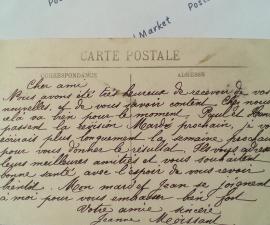 Market
CARTE POSTALE
CORRESPONDANCE
ADRESSE
Cher ami
Nous avons été très heureux de recevoir de vos
nouvelles, et de vous savoir content. Chez nous
cela va bien pour le moment.
passent la révision Mardi prochain, je vous
écrirais plus longuement la semaine
pour vous donner le résultat. Ils vous adressent
leurs meilleures amitiés et vous souhaitent
bonne santé avec l'espoir de vous revoir
bientôt. Mon mari et Jean se joignent
à moi pour vous embrasser bien fort
Votre amie sincère
Jeanne Moissant